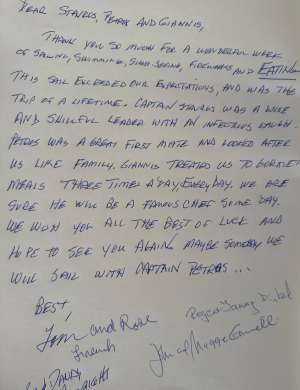 DEAR STAVROS, PETROS AND GIANNIS,
THANK YOU SO MUCH FOR A WONDERFUL WEEK
OF SAILING, SWIMMING, SIGHT SEEING, FIREWORKS, AND EATING.
THIS SAIL EXCEEDED OUR EXPECTATIONS, AND WAS THE
TRIP OF A LIFETIME. CAPTAIN STAVROS WAS A
AND SKILLFUL LEADER WITH AN INFECTIOUS LAUGH.
PETROS WAS A GREAT FIRST MATE AND LOOKED AFTER
US LIKE FAMILY. GIANNIS TREATED US TO GORMET
MEALS THREE TIMES A DAY, EVERY DAY. WE ARE
SURE HE WILL BE A FAMOUS CHEF SOME DAY.
WE WISH YOU ALL THE BEST OF LUCK AND
HOPE TO SEE YOU AGAIN. MAYBE SOMEDAY WE
WILL SAIL WITH CAPTAIN PETROS ...
BEST,
Tom and Rose